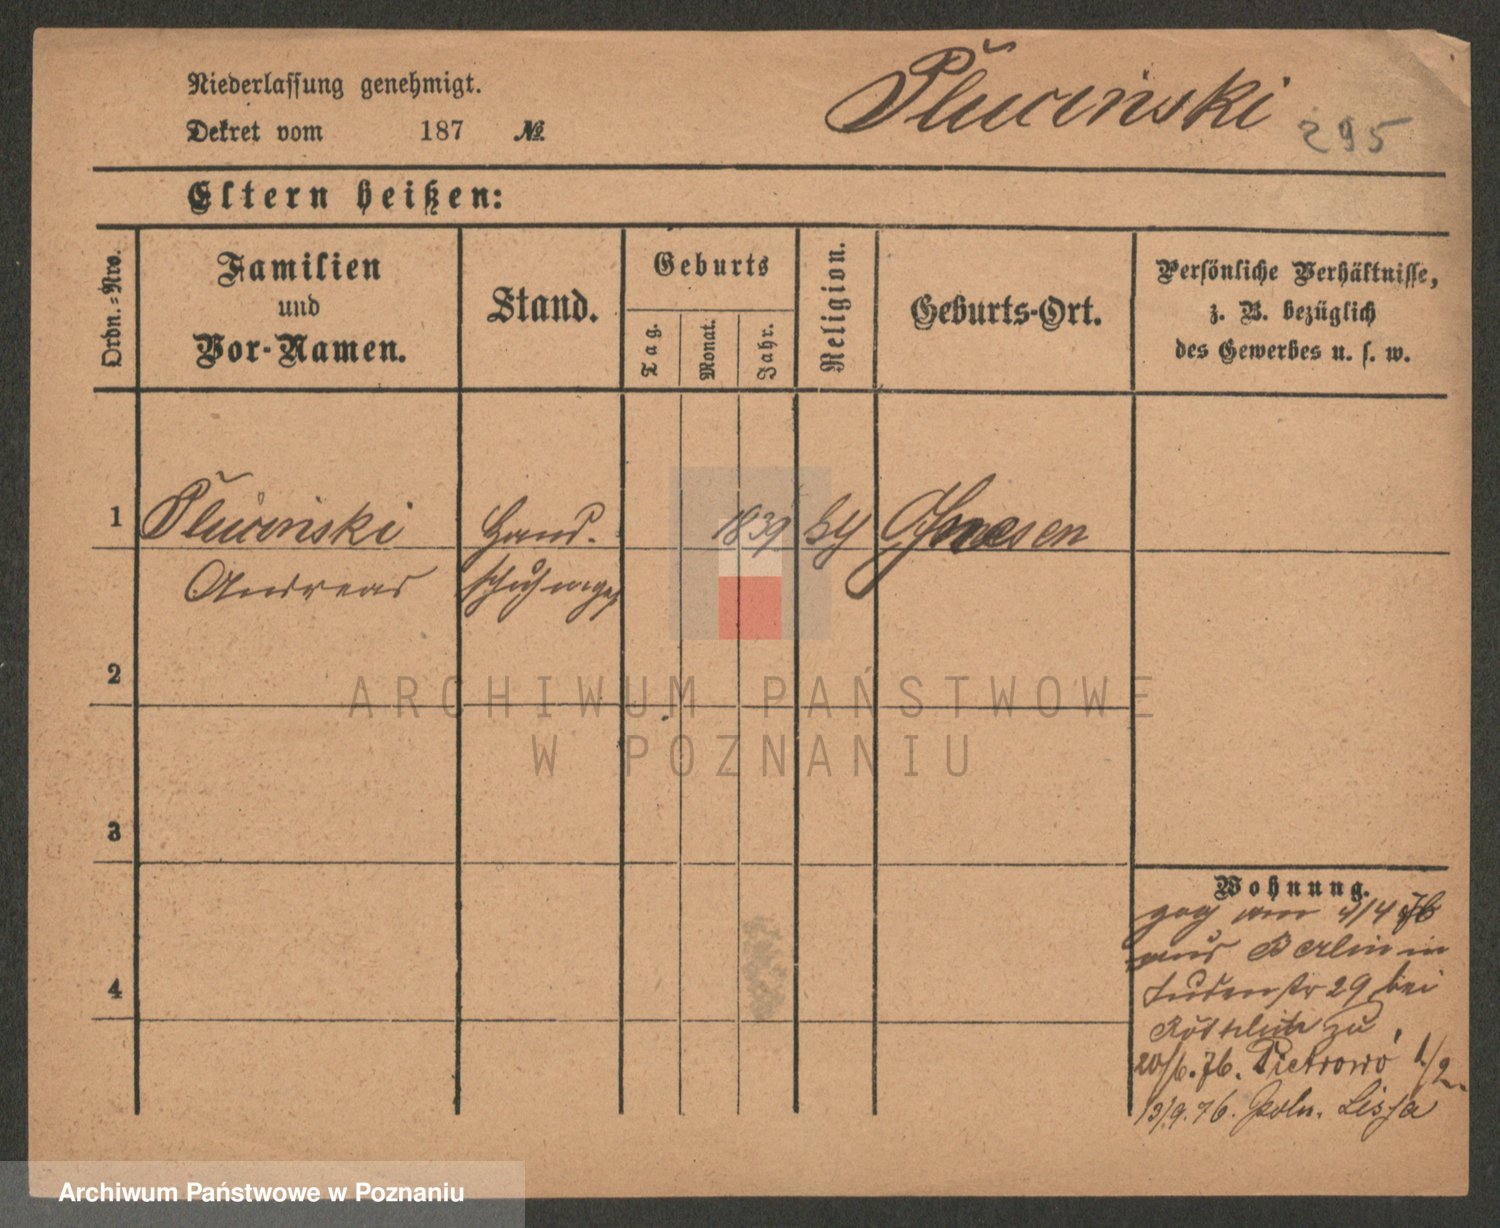 Niederlassung genehmigt.
Dekret vom 187 №
Pluciński 295
Eltern heißen:
Ordn.-Nro.
Familien
und
Vor-Namen.
Stand.
Geburts
Tag.
Monat.
Jahr.
Religion.
Geburts-Ort.
Persönliche Verhältnisse,
z. B. bezüglich
des Gewerbes u. s. w.
1 Pluciński Hand- 1839 Gnesen
Andreas
2
ARCHIWUM PAŃSTWOWE
W POZNANIU
3
Wohnung.
am 4/4 76
aus Berlin in
Judenstr 29 bei
zu
20/6. 76. Pietrowo
13/9. 76. Poln. Lissa
4
Archiwum Państwowe w Poznaniu